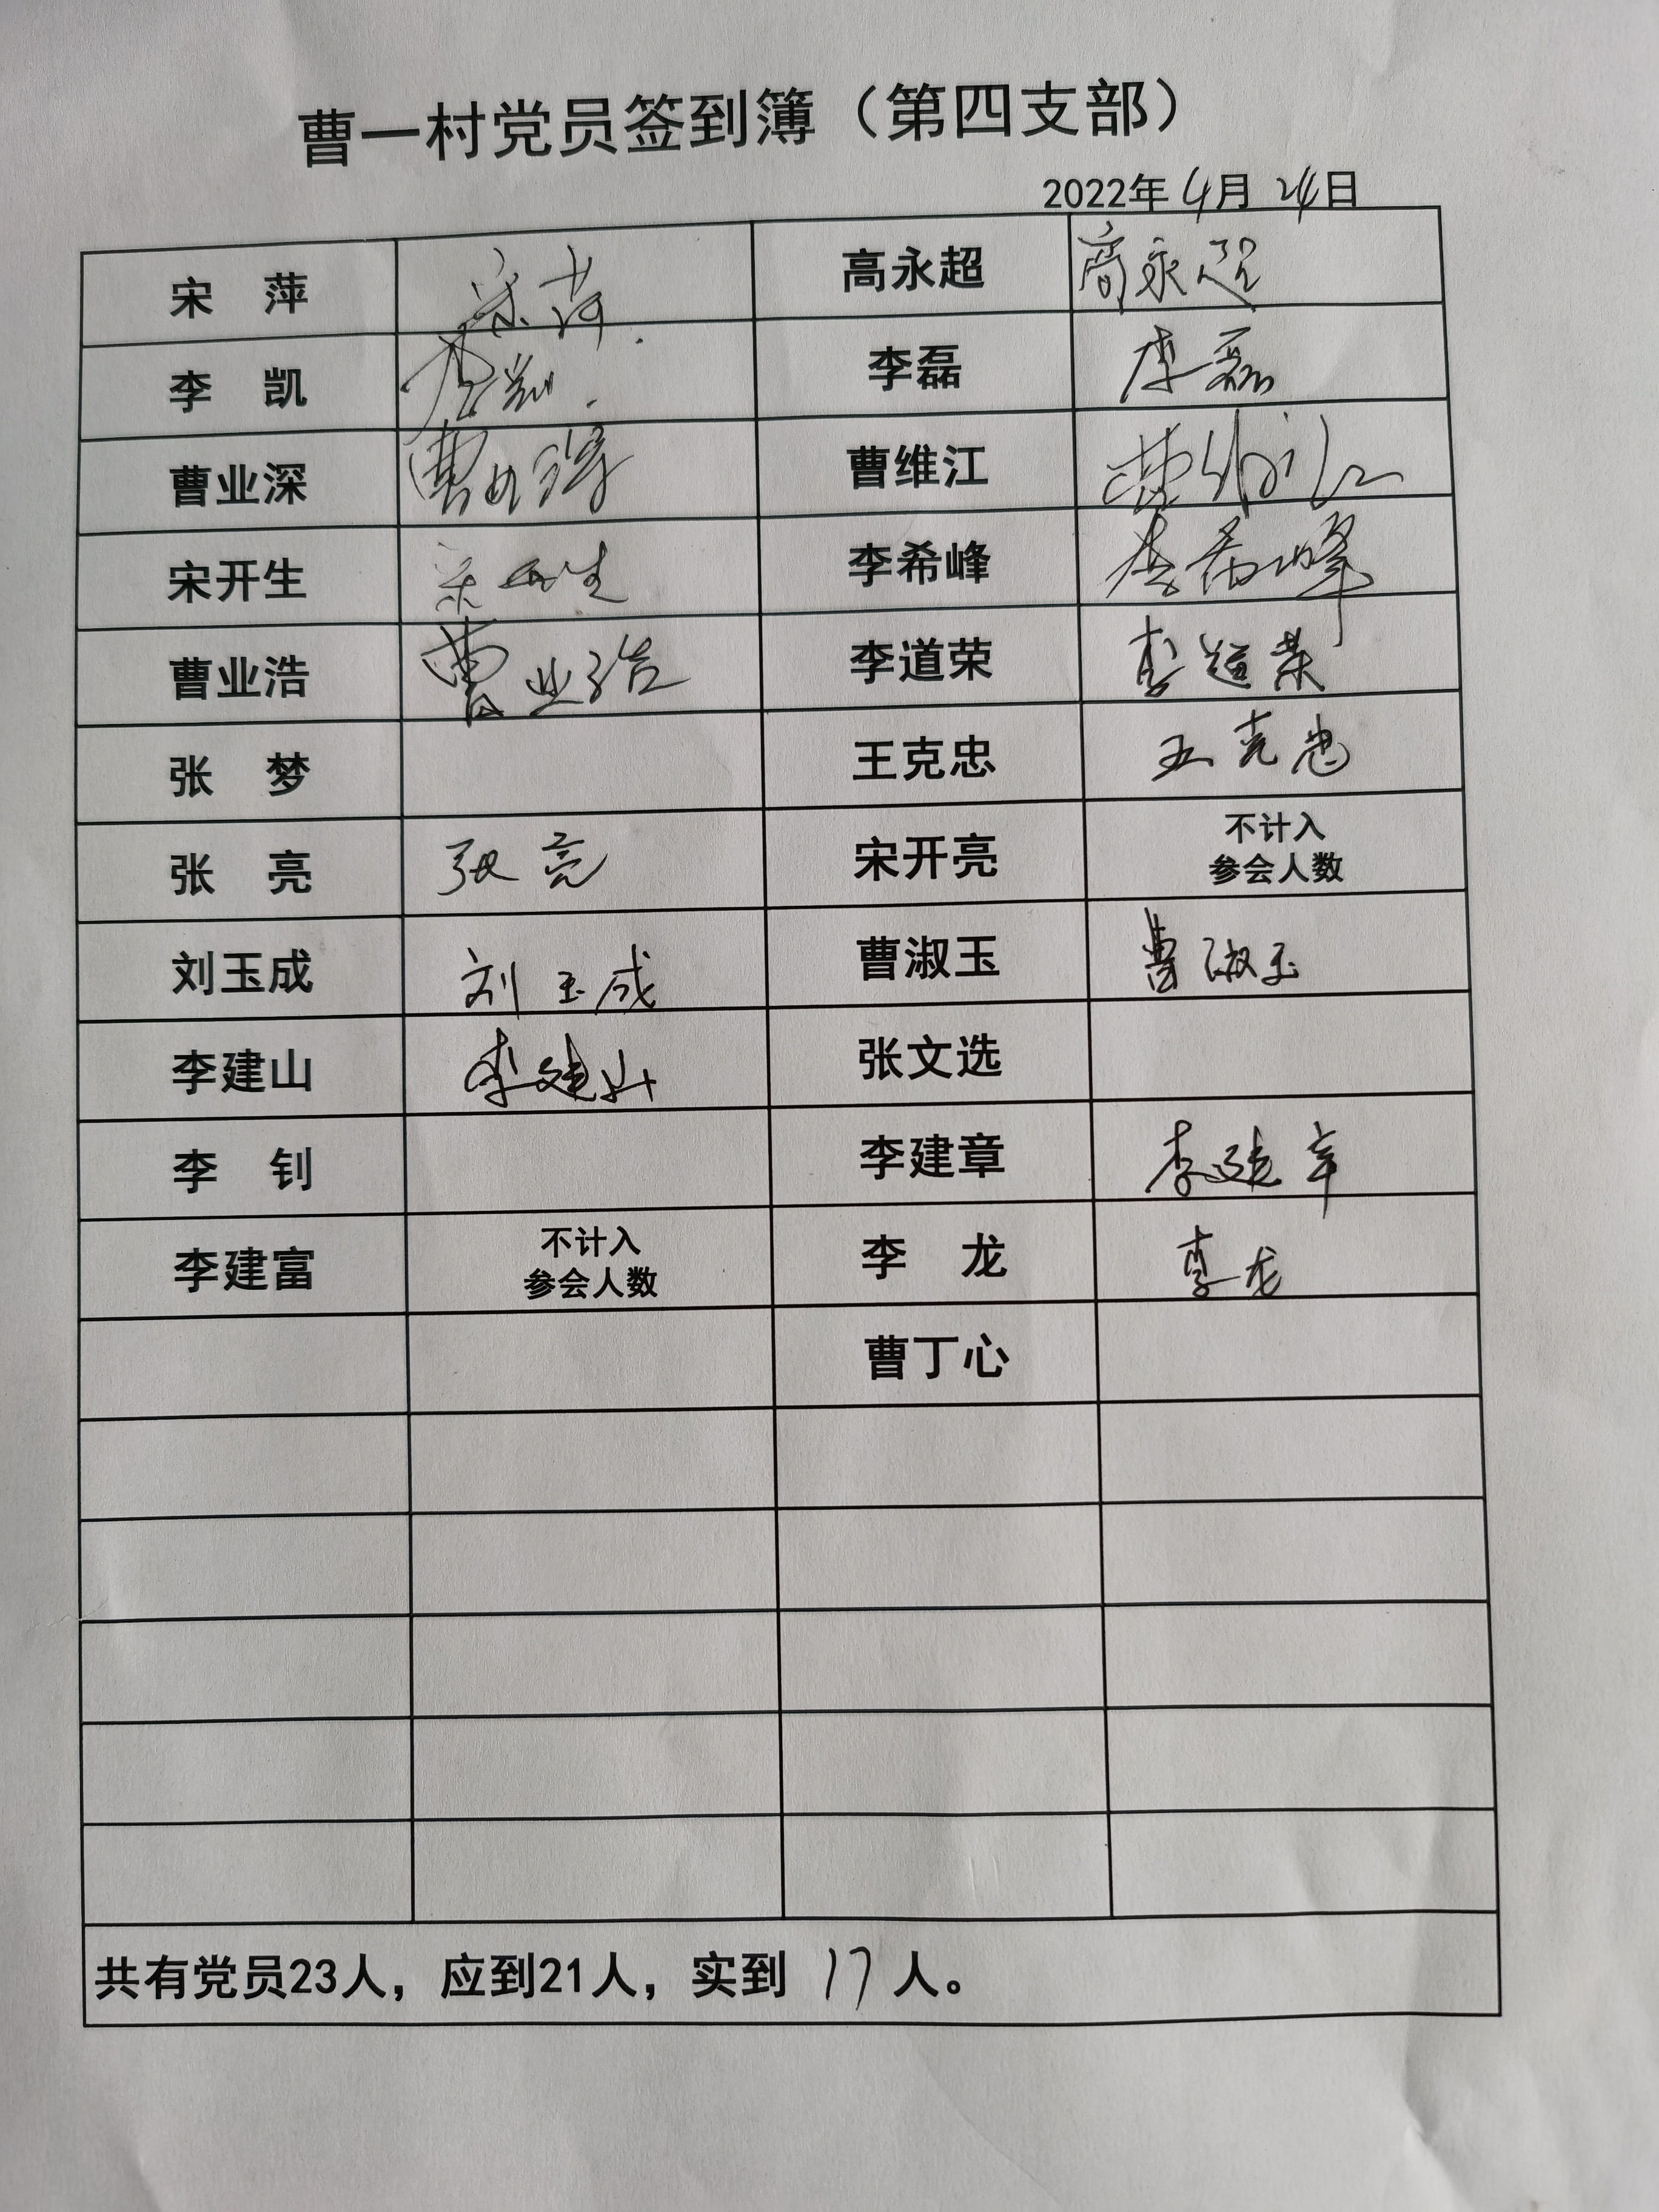 曹一村党员签到簿（第四支部）
2022年4月24日
宋 萍 宋萍 高永超 高永超
李 凯 李凯 李磊 李磊
曹业深 曹业深 曹维江 曹维江
宋开生 宋开生 李希峰 李希峰
曹业浩 曹业浩 李道荣 李道荣
张 梦 王克忠 王克忠
张 亮 张亮 宋开亮 不计入
参会人数
刘玉成 刘玉成 曹淑玉 曹淑玉
李建山 李建山 张文选
李 钊 李建章 李建章
李建富 不计入
参会人数 李 龙 李龙
曹丁心
共有党员23人，应到21人，实到 17 人。